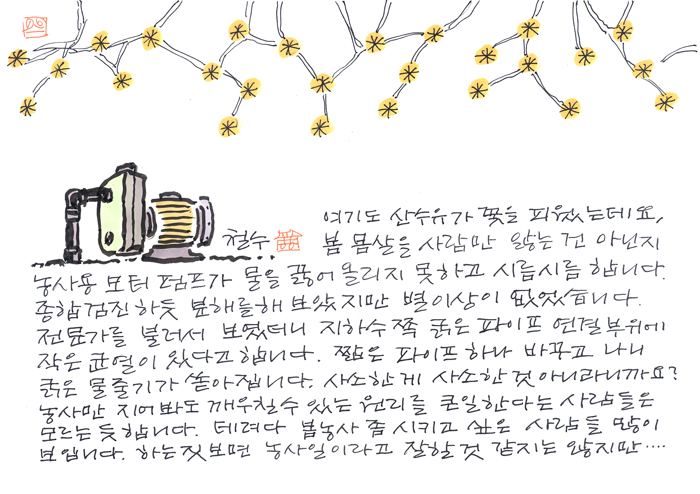 여기도 산수유가 꽃을 피웠는데요,
철수 봄 몸살을 사람만 앓는 건 아닌지
농사용 모터 펌프가 물을 끓어올리지 못하고 시름시름 합니다.
종합검진하듯 분해를해 보았지만 별이상이 없었습니다.
전문가를 불러서 보였더니 지하수쪽 굵은 파이프 연결부위에
작은 균열이 있다고 합니다. 짧은 파이프 하나 바꾸고 나니
굵은 물줄기가 쏟아집니다. 사소한게 사소한것 아니라니까요?
농사만 지어봐도 깨우칠수 있는 원리를 큰일한다는 사람들은
모르는 듯 합니다. 데려다 봄농사 좀 시키고 싶은 사람들 많이
보입니다. 하는짓보면 농사일이라고 잘할것 같지는 않지만····